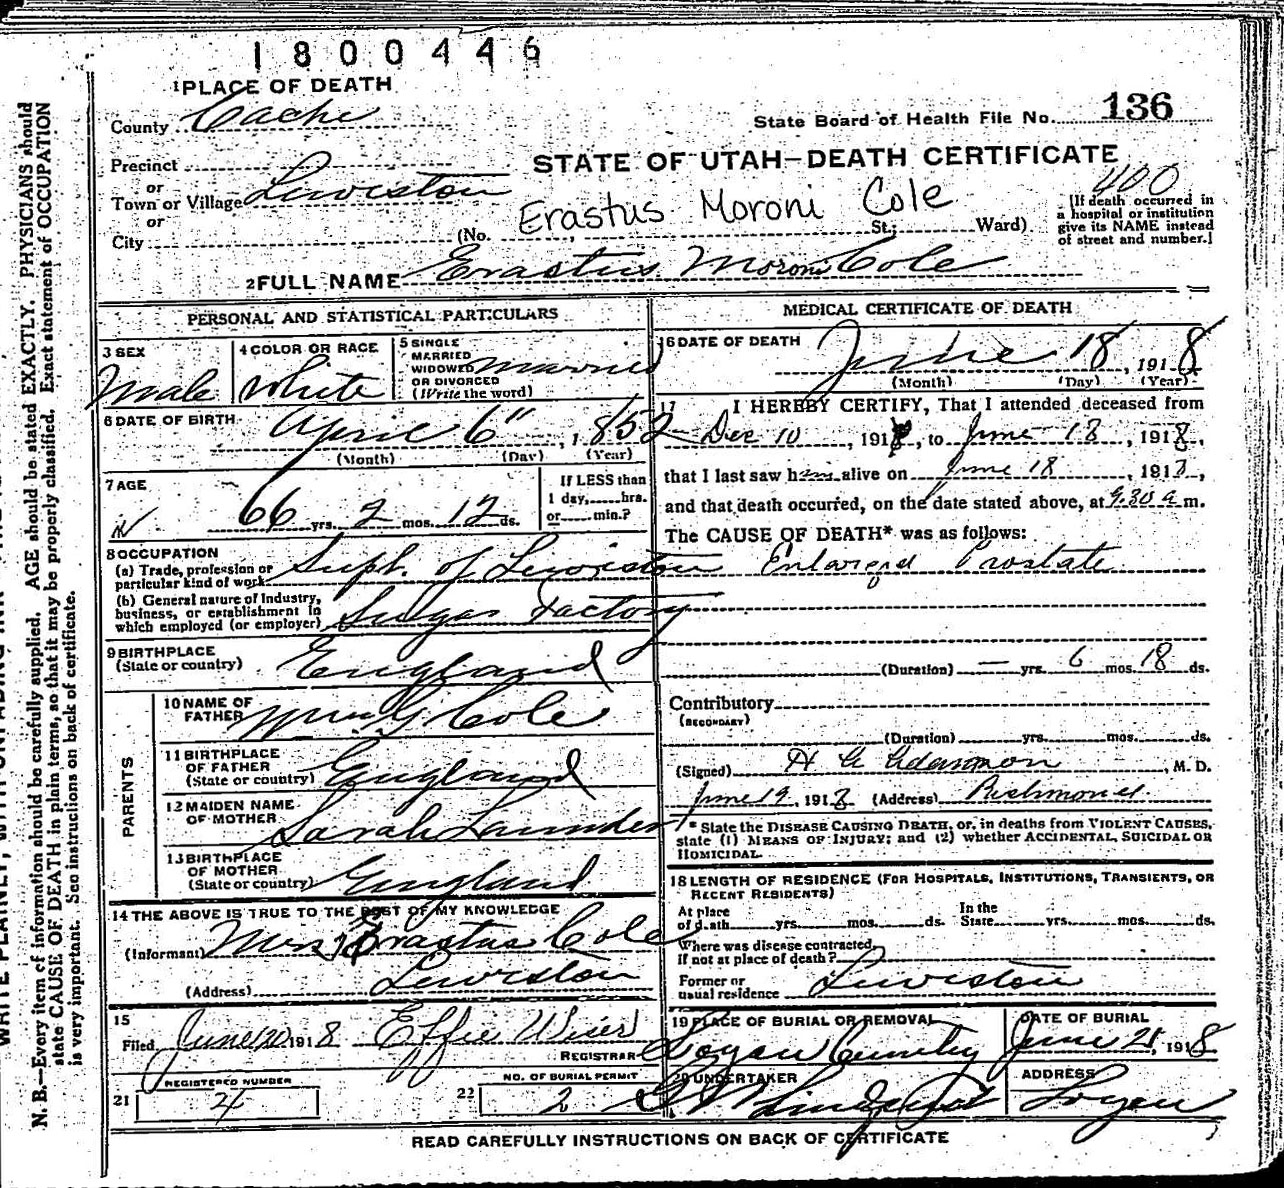 1800446
1 PLACE OF DEATH
County Cache
State Board of Health File No. 136
Precinct
STATE OF UTAH—DEATH CERTIFICATE
or
400
Town or Village Lewiston
Erastus Moroni Cole
or
City (No. St.; Ward)
[If death occurred in
a hospital or institution
give its NAME instead
of street and number.]
2 FULL NAME Erastus Moroni Cole
PERSONAL AND STATISTICAL PARTICULARS
3 SEX
Male
4 COLOR OR RACE
White
5 SINGLE
MARRIED
WIDOWED
OR DIVORCED
(Write the word)
married
6 DATE OF BIRTH April 6" 1852
(Month) (Day) (Year)
7 AGE
66 yrs. 2 mos. 12 ds.
If LESS than
1 day, hrs.
or min.?
8 OCCUPATION
(a) Trade, profession or
particular kind of work Supt. of Lewiston
(b) General nature of Industry,
business, or establishment in
which employed (or employer) Sugar Factory
9 BIRTHPLACE
(State or country) England
PARENTS
10 NAME OF
FATHER Cole
11 BIRTHPLACE
OF FATHER
(State or country) England
12 MAIDEN NAME
OF MOTHER Sarah
13 BIRTHPLACE
OF MOTHER
(State or country) England
14 THE ABOVE IS TRUE TO THE BEST OF MY KNOWLEDGE
(Informant) Mrs Erastus Cole
(Address) Lewiston
15
Filed June 20 1918 Effie Wiser
REGISTRAR
REGISTERED NUMBER
21 4
NO. OF BURIAL PERMIT
22 2
MEDICAL CERTIFICATE OF DEATH
16 DATE OF DEATH
June 18, 1918
(Month) (Day) (Year)
17 I HEREBY CERTIFY, That I attended deceased from
Dec 10, 191, to June 18, 1918,
that I last saw him alive on June 18, 1918,
and that death occurred, on the date stated above, at 9.30 a m.
The CAUSE OF DEATH* was as follows:
Enlarged Prostate
(Duration) — yrs. 6 mos. 18 ds.
Contributory
(SECONDARY)
(Duration) yrs. mos. ds.
(Signed) H G Adamson, M. D.
June 19, 1918 (Address) Richmond
* State the DISEASE CAUSING DEATH, or, in deaths from VIOLENT CAUSES,
state (1) MEANS OF INJURY; and (2) whether ACCIDENTAL, SUICIDAL OR
HOMICIDAL.
18 LENGTH OF RESIDENCE (FOR HOSPITALS, INSTITUTIONS, TRANSIENTS, OR
RECENT RESIDENTS)
At place
of death yrs. mos. ds.
In the
State yrs. mos. ds.
Where was disease contracted,
if not at place of death?
Former or
usual residence Lewiston
19 PLACE OF BURIAL OR REMOVAL
Logan Cemetery
DATE OF BURIAL
June 21, 1918
20 UNDERTAKER
Lindquist
ADDRESS
Logan
READ CAREFULLY INSTRUCTIONS ON BACK OF CERTIFICATE
N. B.—Every item of information should be carefully supplied. AGE should be stated EXACTLY. PHYSICIANS should
state CAUSE OF DEATH in plain terms, so that it may be properly classified. Exact statement of OCCUPATION
is very important. See instructions on back of certificate.